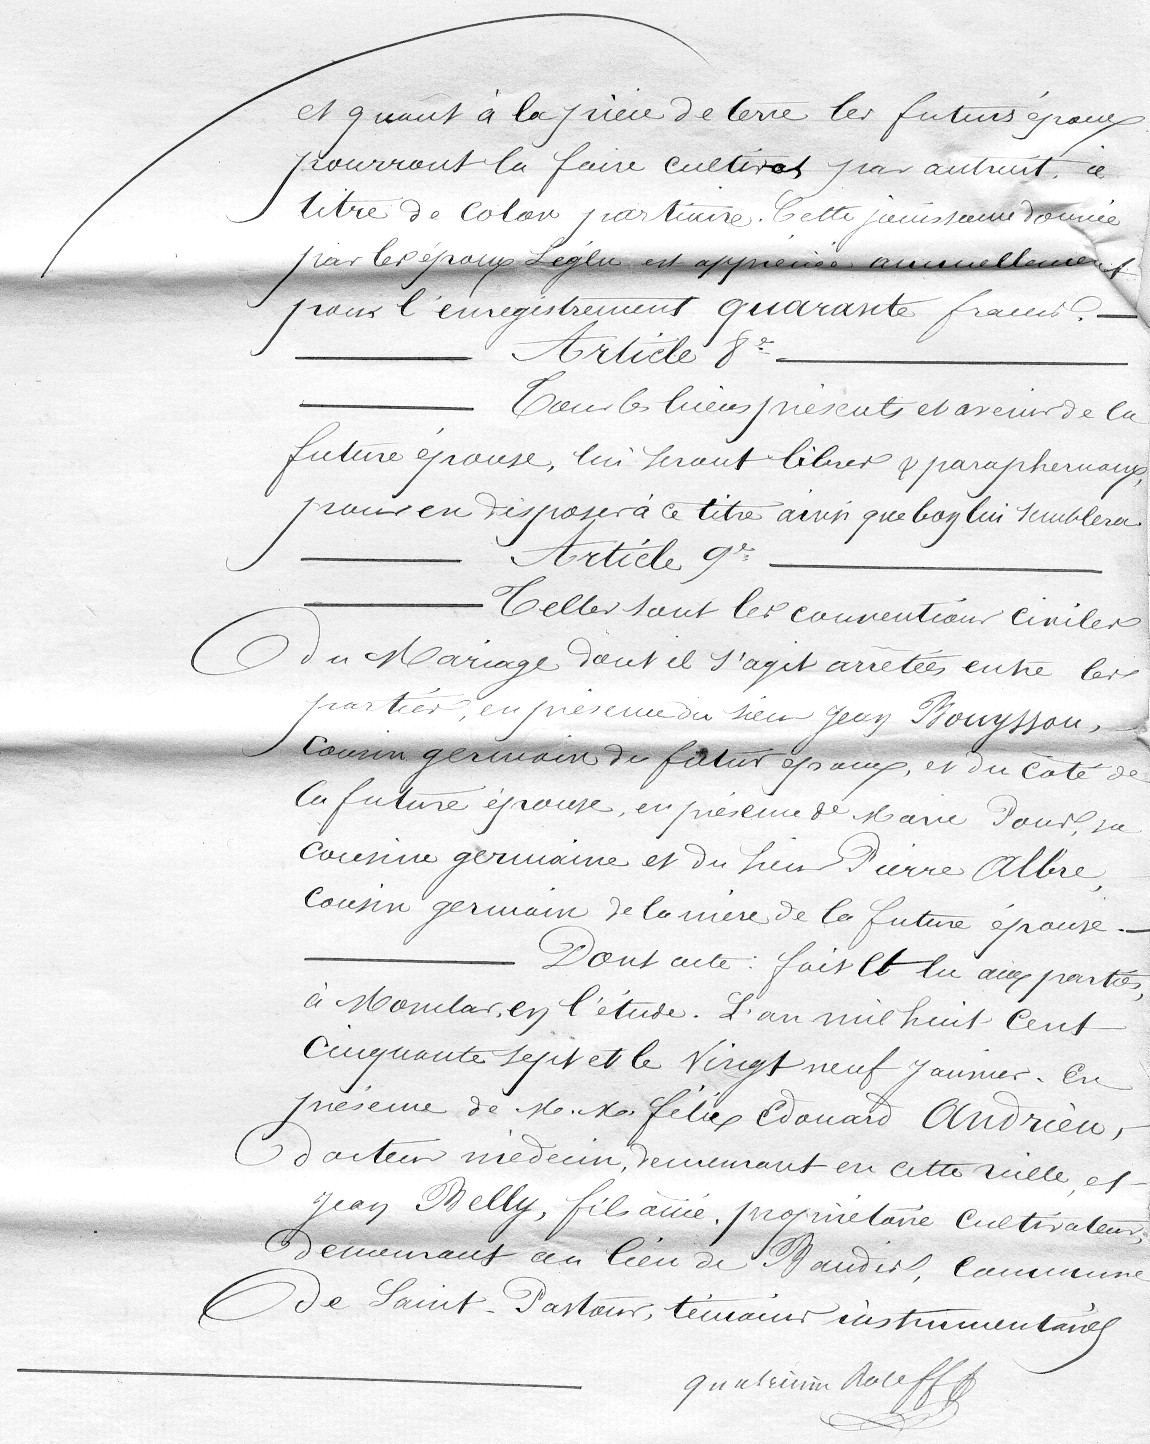 et quant à la pièce de terre les futurs époux
pourront la faire cultiver par autruit, à
titre de colon partiaire. Cette jouissance donnée
par les époux Léglu est appréciée annuellement
pour l'enregistrement quarante francs.
Article 8e
Tous les biens présents et avenir de la
future épouse, lui seront libres & paraphernaux,
pour en disposer à ce titre ainsi que bon lui semblera
Article 9e
Telles sont les conventions civiles
du Mariage dont il s'agit arretées entre les
parties, en présence du sieur Jean Bouyssou,
cousin germain du futur époux, et du coté de
la future épouse, en présence de Marie Pons, sa
cousine germaine et du sieur Pierre Albre,
cousin germain de la mère de la future épouse.
Dont acte : fait et lu aux parties,
à Monclar, en l'étude. L'an mil huit cent
cinquante sept et le vingt neuf janvier. En
présence de M.M. félix Edouard Andrieu,
docteur médecin, demeurant en cette ville, et
Jean Belly, fils ainé, propriétaire cultivateur,
demeurant au lieu de Baudis, commune
de Saint-Pastour, témoins instrumentaires
quatrieme